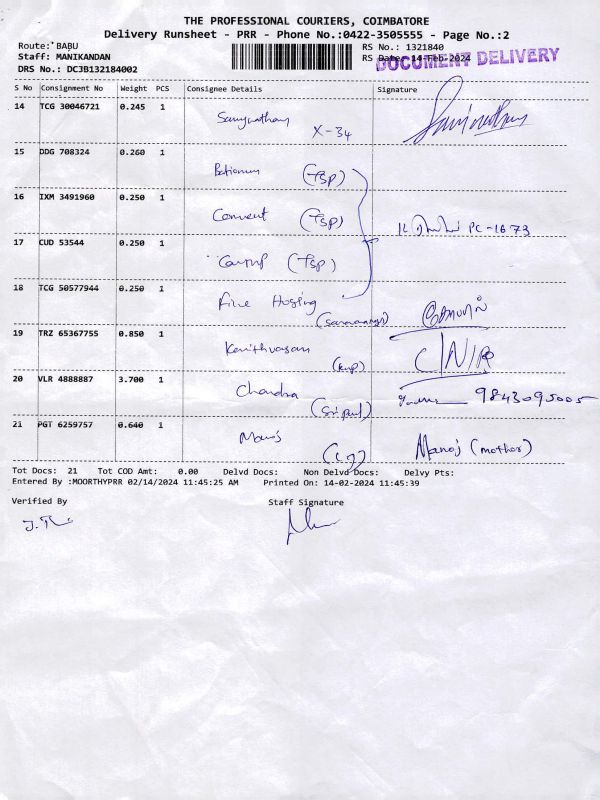 THE PROFESSIONAL COURIERS, COIMBATORE
Delivery Runsheet - PRR - Phone No.:0422-3505555 - Page No.:2
Route: BABU
RS No.: 1321840
Staff: MANIKANDAN
RS Date: 14-Feb-2024
DOCUMENT DELIVERY
DRS No.: DCJB132184002
S No Consignment No Weight PCS Consignee Details Signature
14 TCG 30046721 0.245 1
X-34
15 DDG 708324 0.260 1 (TSP)
16 IXM 3491960 0.250 1 Convent (TSP)
PC-1673
17 CUD 53544 0.250 1 (TSP)
18 TCG 50577944 0.250 1 Fire
19 TRZ 65367755 0.850 1 Kavithvasan
(knp) CNIR
20 VLR 4888887 3.700 1 Chandra 9843095005
21 PGT 6259757 0.640 1 Manoj Manoj (mother)
Tot Docs: 21 Tot COD Amt: 0.00 Delvd Docs: Non Delvd Docs: Delvy Pts:
Entered By :MOORTHYPRR 02/14/2024 11:45:25 AM Printed On: 14-02-2024 11:45:39
Verified By Staff Signature